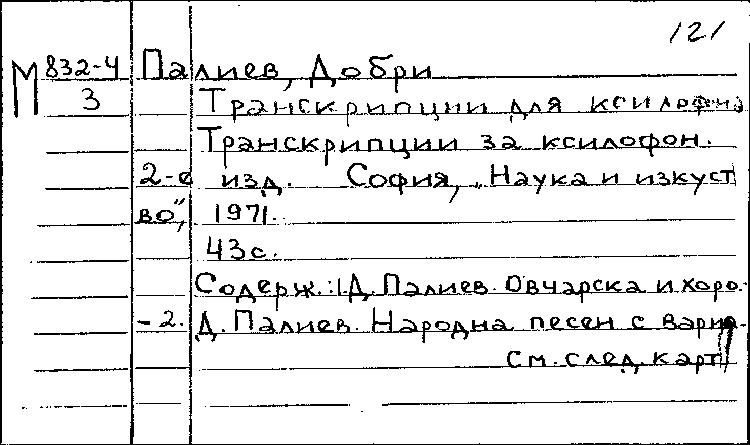 121
М 832-4 Палиев, Добри
3 Транскрипции для ксилофона
Транскрипции за ксилофон.
2-е изд. София, „Наука и изкуст
во”, 1971.
43с.
Содерж.: 1. Д. Палиев. Овчарска и хоро.
- 2. Д. Палиев. Народна песен с вариа-
См. след. карт